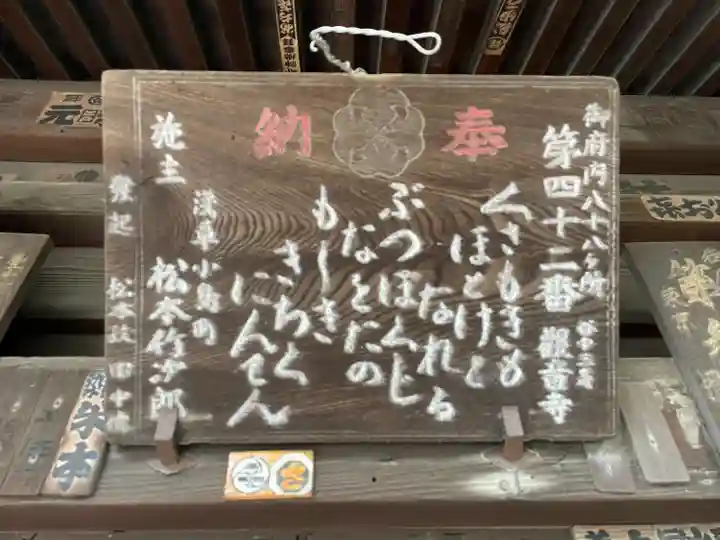 奉納
御府内八十八ケ所
第四十二番 觀音寺
くさもきも
ほとけと
なれる
ぶつほくじ
なとたの
もしき
きちく
にんてん
施主
浅草小島町
松本竹次郎
發起
松本